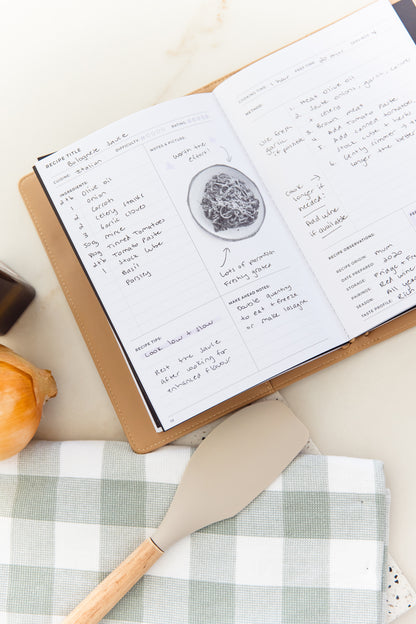 RECIPE TITLE: Bolognese Sauce
CUISINE: Italian
DIFFICULTY:
RATING:
INGREDIENTS:
2 tb Olive oil
1 onion
2 carrots
2 celery stalks
3 Garlic cloves
500g mince
800g Tinned Tomatoes
2 tb Tomato Paste
1 Stock cube
Basil
Parsley
NOTES & PICTURE:
Worth the
effort!
Lots of parmesan
Freshly grated
RECIPE TIPS:
Cook slow + slow
Rest the sauce
after cooking for
enhanced flavour
MAKE AHEAD NOTES:
Double quantity
to eat + freeze
or make lasagne
COOKING TIME: 1 hour
PREP TIME: 20 min
SERVINGS: 4
METHOD:
1. Heat olive oil
2. Saute onions, garlic, carrots
+ celery
3. Brown meat
4. Add Tomato Paste
5. Add canned tomatoes
stock cube + herbs
6. Gently simmer
longer the better
Use fresh
if possible
Cook
longer if
needed!
Add wine
if available
RECIPE OBSERVATIONS:
RECIPE ORIGIN: Mum
DATE PREPARED: 2020
STORAGE: Fridge
PAIRINGS: Red
SEASON: All year
TASTE PROFILE: Rich